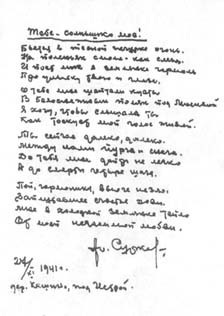 Тебе - солнышко моё!
Бьется в тесной печурке огонь.
На поленьях смола, как слеза.
И поет мне в землянке гармонь
Про улыбку твою и глаза.
О тебе мне шептали кусты
В белоснежных полях под Москвой
Я хочу, чтобы слышала ты
Как тоскует мой голос живой.
Ты сейчас далеко, далеко.
Между нами снега и снега.
До тебя мне дойти не легко
А до смерти четыре шага.
Пой, гармоника, вьюге назло.
Заплутавшее счастье зови.
Мне в холодной землянке тепло
От моей негасимой любви.
Ал. Сурков
27/XI 1941г.
дер. Кашино, под Истрой